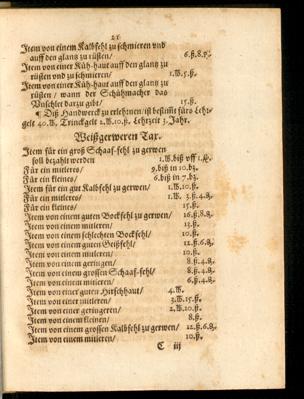 21
Item von einem Kalbfehl zu schmieren vnd
auff den glantz zu rüsten/ 6.ß.8.
Item von einer Küh-haut auff den glantz zu
rüsten vnd zu schmieren/ 1.W.5.ß.
Item von einer Küh-haut auff den glantz zu
rüsten / wann der Schühmacher das
Vnschlet darzu gibt/ 15.ß.
¶ Diß Handwerck zu erlehrnen/ ist bestimt fürs Lehr-
gelt 40.W. Trinckgelt 2.W.10.ß. Lehrzeit 3. Jahr.
Weißgerweren Tax.
Item für ein groß Schaaf-fehl zu gerwen
soll bezahlt werden 1.W.biß
Für ein mitlers/ 9.biß in 10.bz.
Für ein kleines/ 6.biß in 7.bz.
Item für ein gut Kalbfehl zu gerwen/ 1.W.10.ß.
Für ein mitlers/ 1.W. 3.ß.4.
Für ein kleines/ 15.ß.
Item von einem guten Bockfehl zu gerwen/ 16.ß.8.
Item von einem mitlern/ 13.ß.
Item von einem schlechten Bockfehl/ 10.ß.
Item von einem guten Geißfehl/ 12.ß.6.
Item von einem mitlern/ 10.ß.
Item von einem geringen/ 8.ß.4.
Item von einem grossen Schaaf-fehl/ 8.ß.4.
Item von einem mitlern/ 8.ß.4.
Item von einer guten Hirschhaut/ 4.W.
Item von einer mitleren/ 3.W.15.ß.
Item von einer geringeren/ 2.W.10.ß.
Item von einem kleinen/ 8.ß.
Item von einem grossen Kalbfehl zu gerwen/ 12.ß.6.
Item von einem mitlern/ 10.ß.
C iij